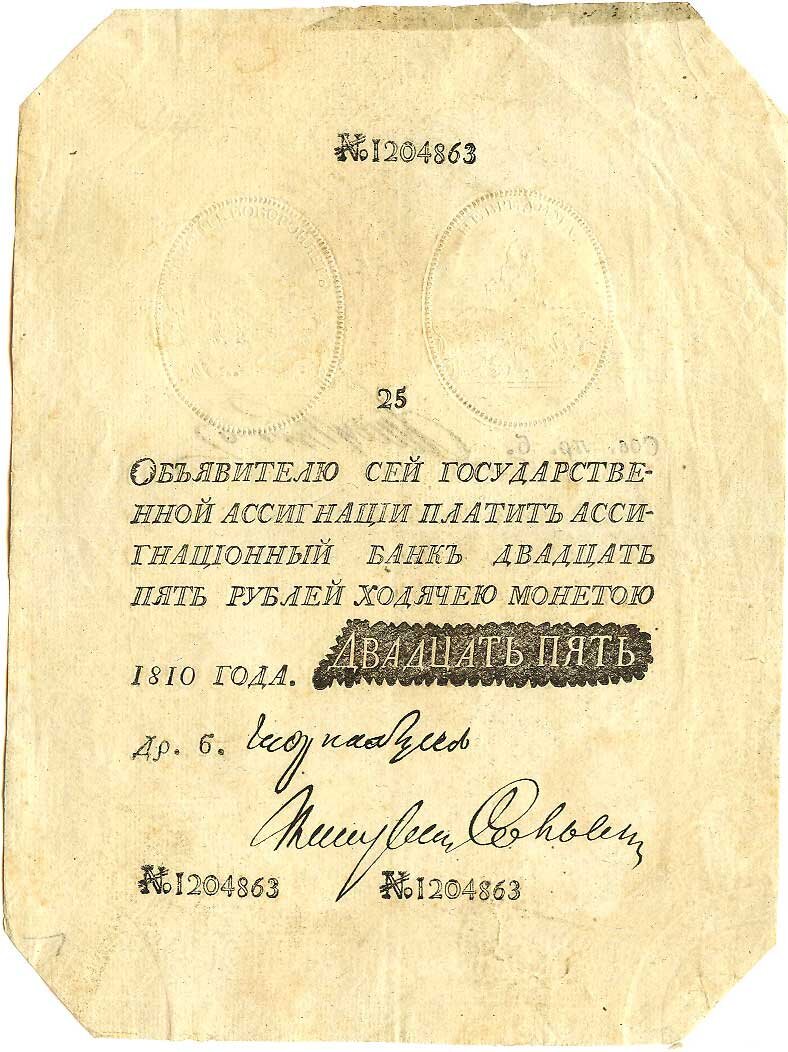 № 1204863
25
ОБЪЯВИТЕЛЮ СЕЙ ГОСУДАРСТВЕ-
ННОЙ АССИГНАЦІИ ПЛАТИТЪ АССИ-
ГНАЦІОННЫЙ БАНКЪ ДВАДЦАТЬ
ПЯТЬ РУБЛЕЙ ХОДЯЧЕЮ МОНЕТОЮ
1810 ГОДА. ДВАДЦАТЬ ПЯТЬ
Др. б.
№ 1204863 № 1204863